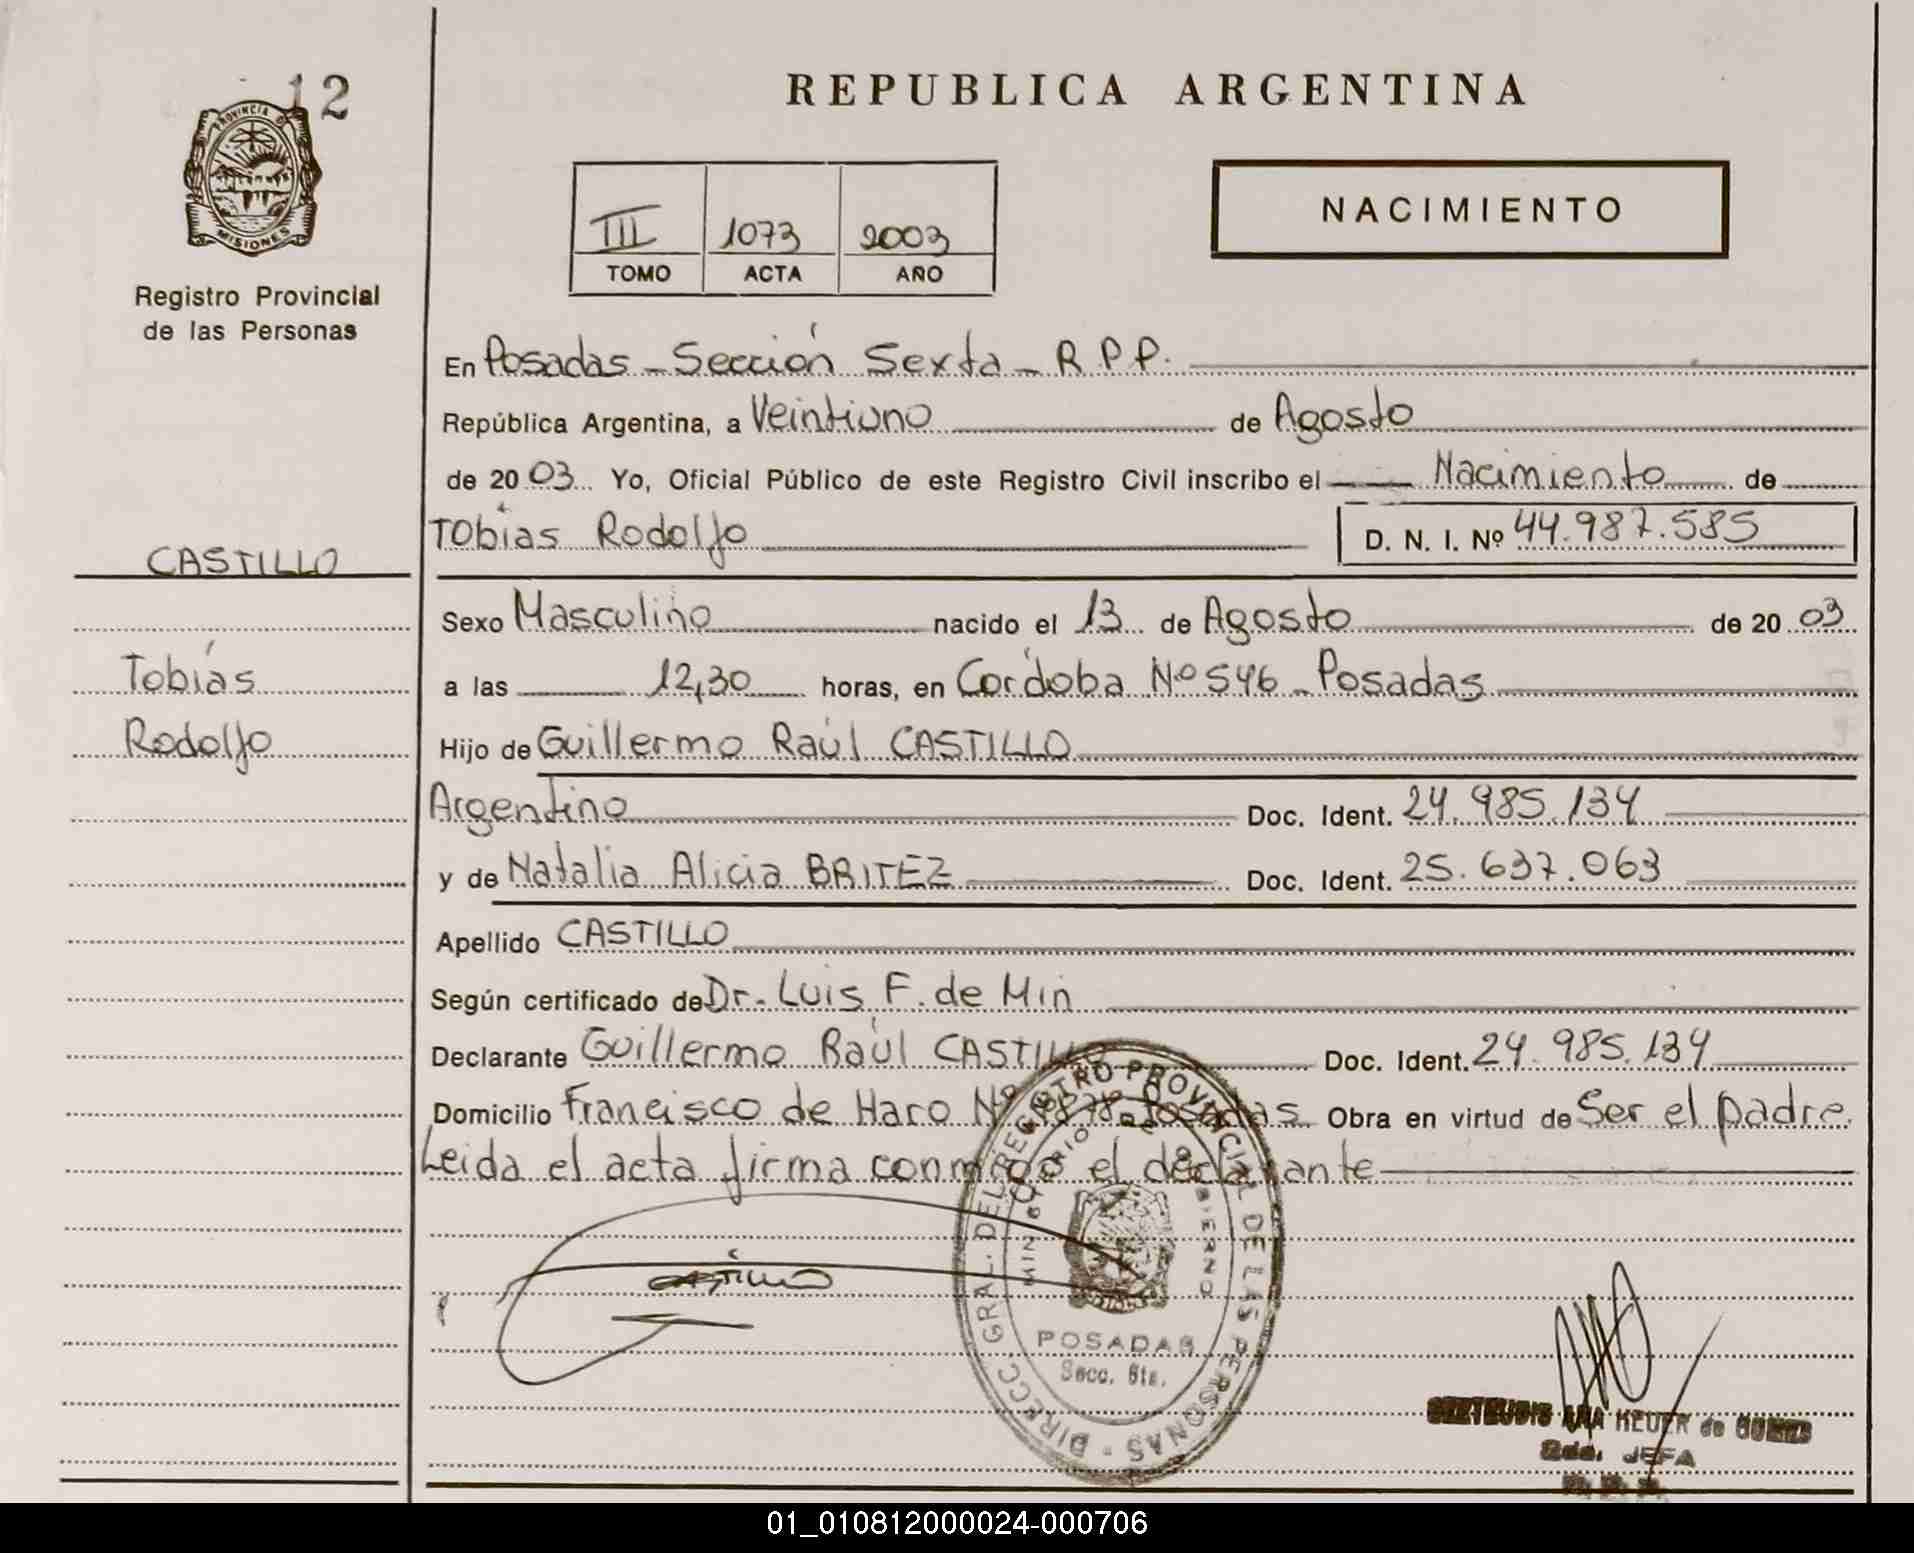 12
PROVINCIA DE
MISIONES
Registro Provincial
de las Personas
CASTILLO
Tobías
Rodolfo
REPUBLICA ARGENTINA
III 1073 2003
TOMO ACTA AÑO
NACIMIENTO
En Posadas - Sección Sexta - R.P.P.
República Argentina, a Veintiuno de Agosto
de 2003 Yo, Oficial Público de este Registro Civil inscribo el Nacimiento de
Tobías Rodolfo D. N. I. Nº 44.987.585
Sexo Masculino nacido el 13 de Agosto de 2003
a las 12,30 horas, en Córdoba Nº 546 - Posadas
Hijo de Guillermo Raúl CASTILLO
Argentino Doc. Ident. 24.985.134
y de Natalia Alicia BRITEZ Doc. Ident. 25.637.063
Apellido CASTILLO
Según certificado de Dr. Luis F. de Min
Declarante Guillermo Raúl CASTILLO Doc. Ident. 24.985.134
Domicilio Francisco de Haro Nº Posadas Obra en virtud de Ser el padre.
Leída el acta firma conmigo el declarante
CASTILLO
DIRECC. GRAL. DEL REGISTRO PROVINCIAL DE LAS PERSONAS
MINISTERIO DE GOBIERNO
POSADAS
Secc. 6ta.
ANA HEUER de
JEFA
01_010812000024-000706